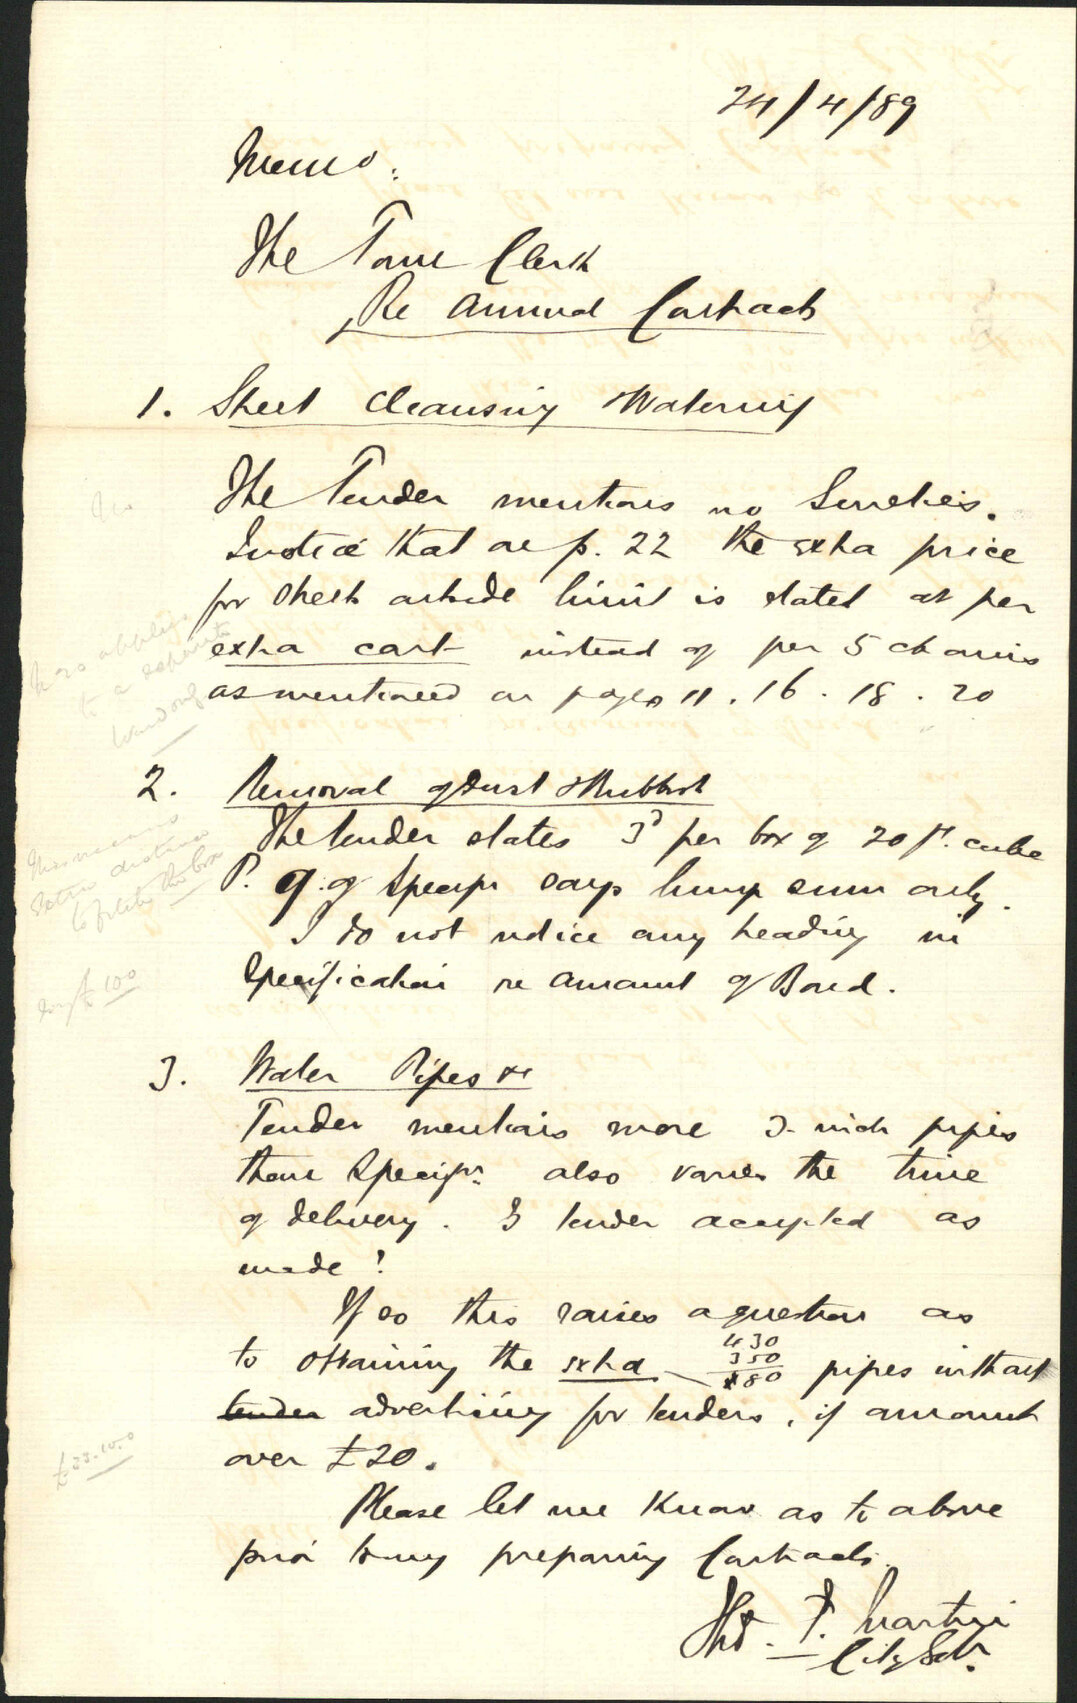 24/4/89
Memo.
The Town Clerk
Re Annual Contracts
1. Street Cleansing & Watering
The Tender mentions no Sureties.
I notice that on p. 22 the extra price
for Streets outside limit is stated at per
extra cart instead of per 5 chains
as mentioned on pages 11. 16. 18. 20
2. Removal of Dust & Rubbish
The tender states 3d per box of 20 ft. cube
P. 9. of Specifn says lump sum only.
I do not notice any heading in
Specification re amount of Bond.
3. Water Pipes &c
Tender mentions more 3-inch pipes
than Specifn. also varies the time
of delivery. Is tender accepted as
made?
If so this raises a question as
430
350
80
to obtaining the extra pipes without
tender advertising for tenders, if amount
over £20.
Please let me know as to above
prior to my preparing Contracts.
Thos. P. Martin
City Solr.
No
20 applies
to a separate
Ward only
This means
to fill the box
£100